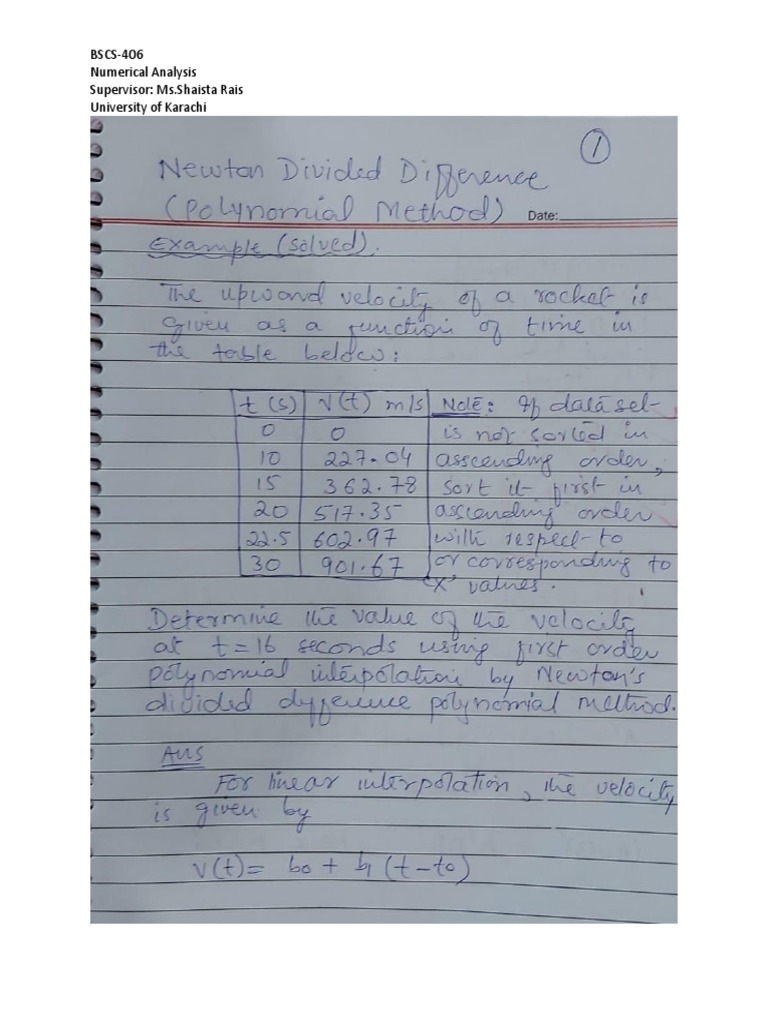 BSCS-406
Numerical Analysis
Supervisor: Ms.Shaista Rais
University of Karachi
1
Newton Divided Difference
(Polynomial Method)
Date:
Example (solved).
The upward velocity of a rocket is
given as a function of time in
the table below:
t (s) V(t) m/s Note: If data set
0 0 is not sorted in
10 227.04 asscending order,
15 362.78 sort it first in
20 517.35 ascending order
22.5 602.97 with respect to
30 901.67 or corresponding to
'x' values.
Determine the value of the velocity
at t=16 seconds using first order
polynomial interpolation by Newton's
divided difference polynomial method.
Ans
For linear interpolation, the velocity
is given by
V(t)= b0 + b1 (t-t0)